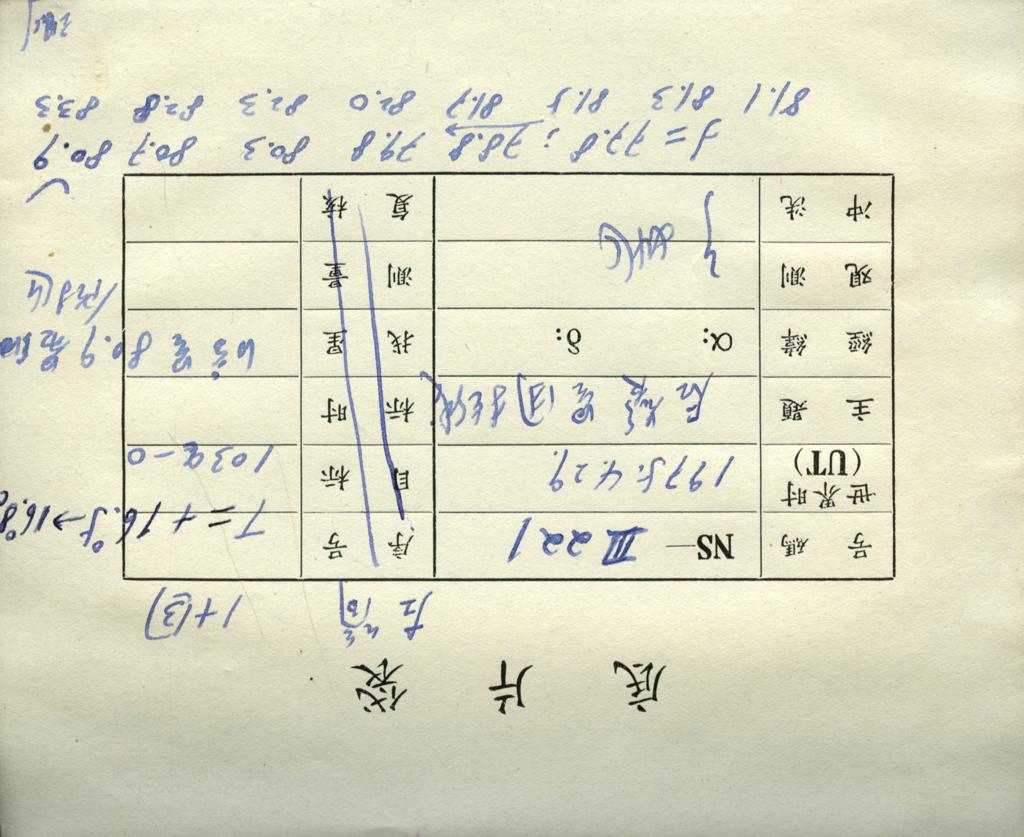 底片袋
左筒 1+(3)
号碼 NS—Ⅲ221 序号 T=+16.5°→16.8°
世界时(UT) 1975.4.29. 目标 103a-0
主題 标时
經緯 α: δ: 找星 80.9
观测 测量
冲洗 复核
f=77.8; 78.8 79.8 80.3 80.7 80.9
81.1 81.3 81.5 81.7 82.0 82.3 82.8 83.3